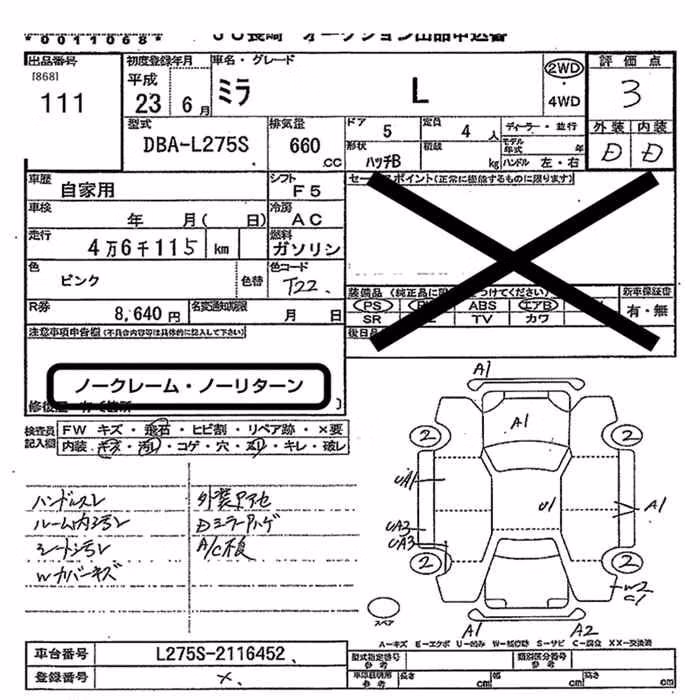 *0011068*
JU長崎 オークション出品申込書
出品番号
[868]
111
初度登録年月
平成
23 6月
車名・グレード
ミラ L
2WD
・
4WD
評価点
3
外装 内装
D D
型式
DBA-L275S
排気量
660
.CC
ドア
5
定員
4 人
ディーラー・並行
モデル年式 年
形状
ハッチB
積載
kg
ハンドル 左・右
車歴
自家用
シフト
F5
車検
年 月( 日)
冷房
AC
走行
4万6千115 km
燃料
ガソリン
色
ピンク
色替
色コード
T22
R券
8,640円
名変通知期限
月 日
セールスポイント(正常に機能するものに限ります)
ABS
エアB
SR
TV
カワ
新車保証書
有・無
注意事項申告欄(不具合内容等は具体的に記入して下さい)
ノークレーム・ノーリターン
検査員記入欄
FW キズ・飛石・ヒビ割・リペア跡・×要
内装・キズ・汚れ・コゲ・穴・スリ・キレ・破レ
ハンドルスレ
ルーム内汚レ
シート汚レ
Wカバーキズ
A/C不良
A1
A1
2 2
UA1
U1
A1
UA2
UA3
2 2
W2
C1
スペア
A1 A2
A-キズ E-エクボ U-凹み W-板修跡 S-サビ C-腐食 XX-交換済
車台番号
L275S-2116452
登録番号
×
型式指定番号
参考
類別区分番号
参考
長さ cm
幅 cm
高さ cm